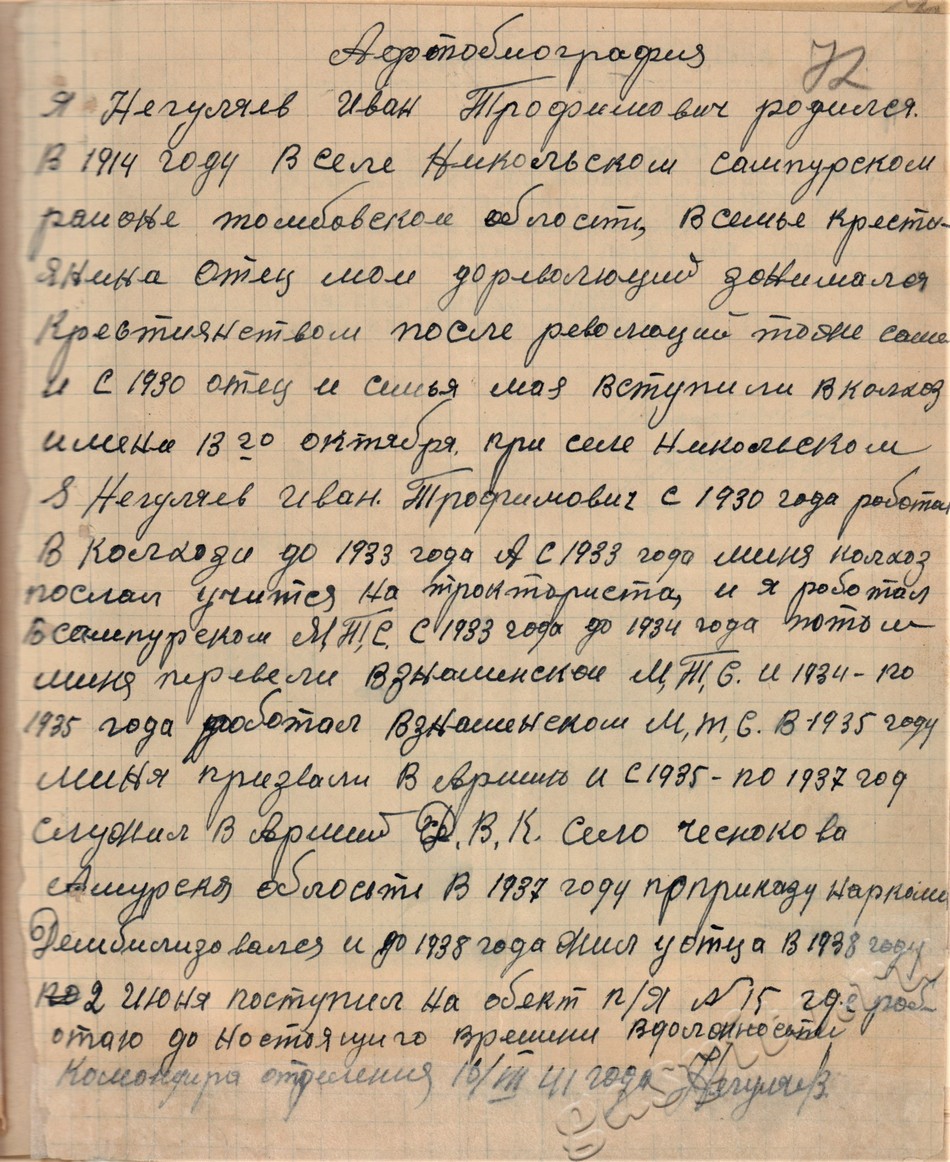 Афтобиография
72
Я Негуляев Иван Трофимович родился.
В 1914 году В селе Никольском сампурском
раионе томбовскои облости, В семье кресть-
янина отец мои дореволюций зонимался
Крестиянством после революций тоже саме
и С 1930 отец и симья мая Вступили В колхоз
имени 13 го октября при селе Никольском
Я Негуляев Иван. Трофимович с 1930 года роботал
В Колхози до 1933 года А С 1933 года миня колхоз
послал учится на троктариста, и я роботал
В сампурском М,Т,С. С 1933 года до 1934 года потом
миня перевели Взнаминское М,Т,С. и 1934 - по
1935 года роботал Взнаменском М,т,С. В-1935 году
миня призвали В Армию и С 1935 - по 1937 год
служил В Армий Д. В, К. Село чесноково
Амурскя облосьти В 1937 году поприказу наркома
Дембилизовался и до 1938 года жил уотца В 1938 году
2 Июня поступил на обект п/я N 15 гд.е роб
отаю до настоящиго времини Вдолжносьти
Командира отделения 16/III 41 года Негуляев.